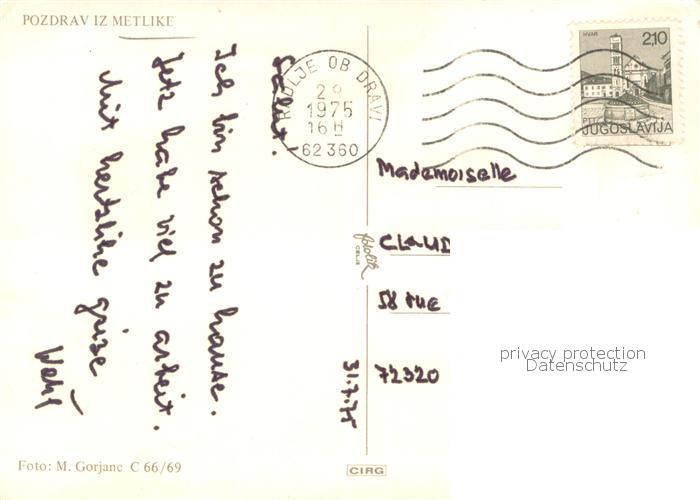 POZDRAV IZ METLIKE
Salut!
Ich bin schon zu hause.
Jetz habe viel zu arbeit.
Mit hertzlihe grüse
31.7.75
RADLJE OB DRAVI
1975
16 H
62 360
HVAR
2,10
JUGOSLAVIJA
Mademoiselle
CLAUD
58 rue
72320
fotolik
CELJE
privacy protection
Datenschutz
Foto: M. Gorjanc C 66/69
CIRG